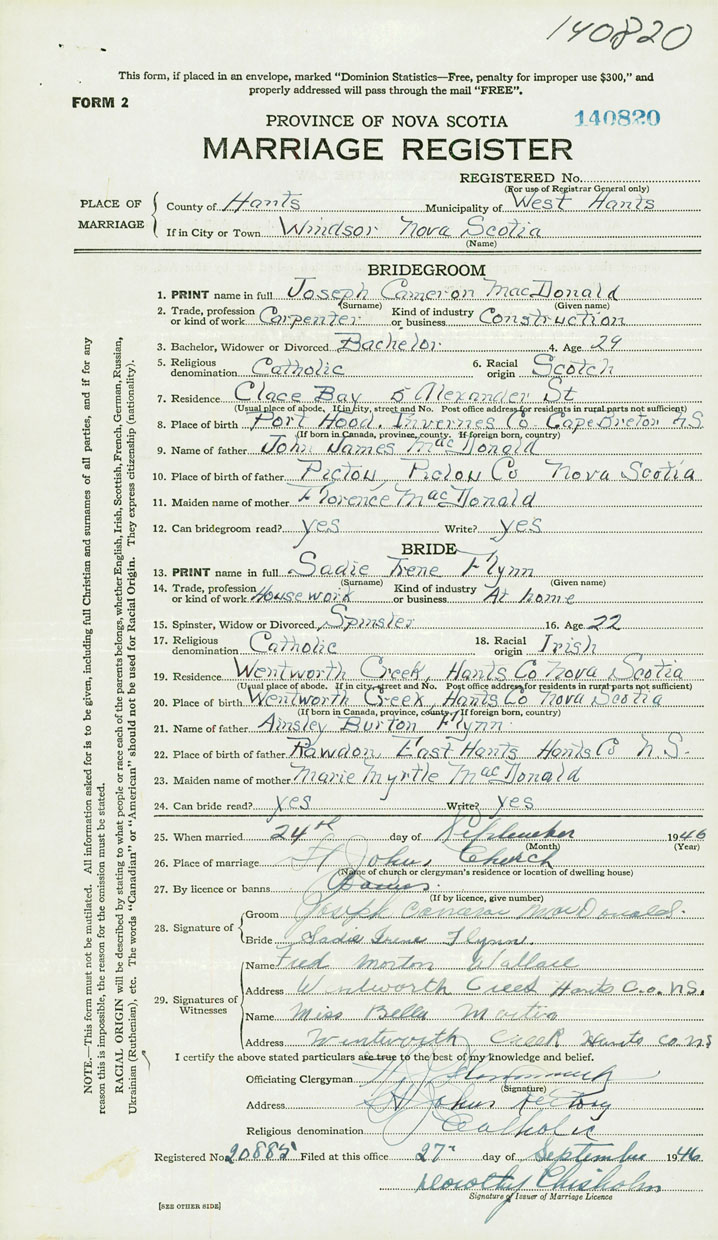 140820
This form, if placed in an envelope, marked "Dominion Statistics—Free, penalty for improper use $300," and
properly addressed will pass through the mail "FREE".
FORM 2
PROVINCE OF NOVA SCOTIA 140820
MARRIAGE REGISTER
REGISTERED No.
(For use of Registrar General only)
PLACE OF MARRIAGE
County of Hants Municipality of West Hants
If in City or Town Windsor Nova Scotia
(Name)
BRIDEGROOM
1. PRINT name in full Joseph Cameron MacDonald
(Surname) (Given name)
2. Trade, profession or kind of work Carpenter Kind of industry or business Construction
3. Bachelor, Widower or Divorced Bachelor 4. Age 29
5. Religious denomination Catholic 6. Racial origin Scotch
7. Residence Clace Bay 5 Alexander St
(Usual place of abode. If in city, street and No. Post office address for residents in rural parts not sufficient)
8. Place of birth Port Hood, Invernes Co Cape Breton N.S
(If born in Canada, province, county. If foreign born, country)
9. Name of father John James MacDonald
10. Place of birth of father Pictou, Pictou Co Nova Scotia
11. Maiden name of mother Florence MacDonald
12. Can bridegroom read? yes Write? yes
BRIDE
13. PRINT name in full Sadie Irene Flynn
(Surname) (Given name)
14. Trade, profession or kind of work Housework Kind of industry or business At home
15. Spinster, Widow or Divorced Spinster 16. Age 22
17. Religious denomination Catholic 18. Racial origin Irish
19. Residence Wentworth Creek, Hants Co Nova Scotia
(Usual place of abode. If in city, street and No. Post office address for residents in rural parts not sufficient)
20. Place of birth Wentworth Creek, Hants Co Nova Scotia
(If born in Canada, province, county. If foreign born, country)
21. Name of father Ainsley Burton Flynn
22. Place of birth of father Rawdon East Hants Hants Co N.S.
23. Maiden name of mother Marie Myrtle MacDonald
24. Can bride read? yes Write? yes
25. When married 24th day of September 1946
(Month) (Year)
26. Place of marriage St Johns Church
(Name of church or clergyman's residence or location of dwelling house)
27. By licence or banns Banns
(If by licence, give number)
28. Signature of
Groom Joseph Cameron MacDonald.
Bride Sadie Irene Flynn.
29. Signatures of Witnesses
Name Fred Morton Wallace
Address Wentworth Creek Hants Co. NS.
Name Miss Bella Martin
Address Wintworth Creek Hants Co NS
I certify the above stated particulars are true to the best of my knowledge and belief.
Officiating Clergyman
(Signature)
Address St Johns Rectory
Religious denomination Catholic
Registered No. 20885 Filed at this office 27th day of September 1946
Dorothy Chisholm
Signature of Issuer of Marriage Licence
[SEE OTHER SIDE]
NOTE.—This form must not be mutilated. All information asked for is to be given, including full Christian and surnames of all parties, and if for any
reason this is impossible, the reason for the omission must be stated.
RACIAL ORIGIN will be described by stating to what people or race each of the parents belongs, whether English, Irish, Scottish, French, German, Russian,
Ukrainian (Ruthenian), etc. The words "Canadian" or "American" should not be used for Racial Origin. They express citizenship (nationality).